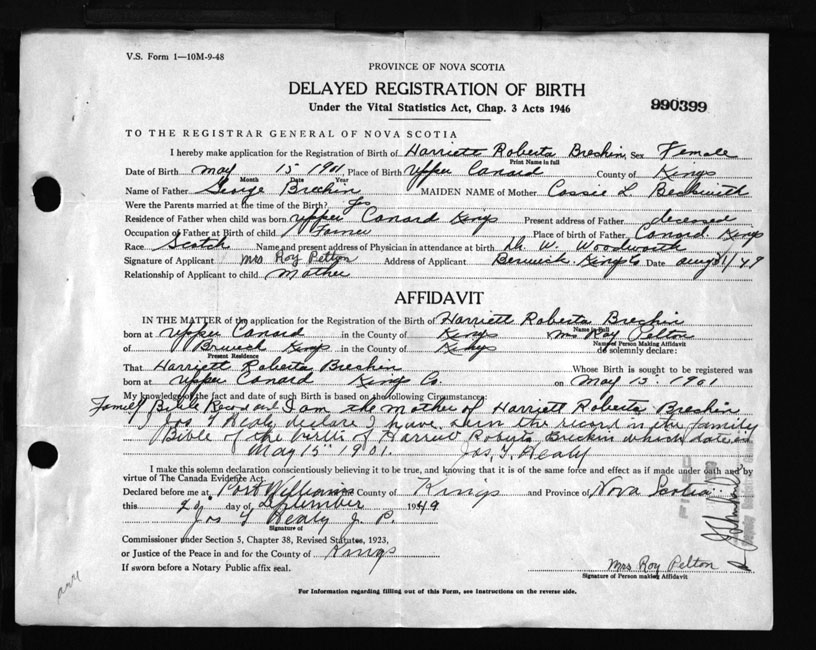 V.S. Form 1—10M-9-48
PROVINCE OF NOVA SCOTIA
DELAYED REGISTRATION OF BIRTH
Under the Vital Statistics Act, Chap. 3 Acts 1946
990399
TO THE REGISTRAR GENERAL OF NOVA SCOTIA
I hereby make application for the Registration of Birth of Harriett Roberta Breshin, Sex Female
Print Name in full
Date of Birth May 15 1901, Place of Birth Upper Canard County of Kings
Month Date Year
Name of Father George Brechin MAIDEN NAME of Mother Cassie L. Beckwith
Were the Parents married at the time of the Birth? Yes
Residence of Father when child was born Upper Canard Kings Present address of Father deceased
Occupation of Father at Birth of child Farmer Place of birth of Father Canard Kings
Race Scotch Name and present address of Physician in attendance at birth Dr. W. Woodworth
Signature of Applicant Mrs Roy Pelton Address of Applicant Berwick Kings Co Date Aug 31/49
Relationship of Applicant to child Mother
AFFIDAVIT
IN THE MATTER of the application for the Registration of the Birth of Harriett Roberta Breshin
Name in full
born at Upper Canard in the County of Kings Mrs Roy Pelton
Name of Person Making Affidavit
of Berwick Kings in the County of Kings do solemnly declare:
Present Residence
That Harriett Roberta Breshin Whose Birth is sought to be registered was
born at Upper Canard Kings Co. on May 15. 1901
My knowledge of the fact and date of such Birth is based on the following Circumstances:
Family Bible Record and I am the mother of Harriett Roberta Breshin
Jos Y Healy declare I have seen the record in the family
Bible of the birth of Harriett Roberta Brechin which dates
May 15 1901. Jos. Y. Healy
I make this solemn declaration conscientiously believing it to be true, and knowing that it is of the same force and effect as if made under oath and by
virtue of The Canada Evidence Act.
Declared before me at Port Williams County of Kings and Province of Nova Scotia
this 2 day of September 1949
Jos Y Healy J. P.
Signature of
Commissioner under Section 5, Chapter 38, Revised Statutes, 1923,
or Justice of the Peace in and for the County of Kings
If sworn before a Notary Public affix seal.
Mrs Roy Pelton
Signature of Person making Affidavit
For Information regarding filling out of this Form, see Instructions on the reverse side.